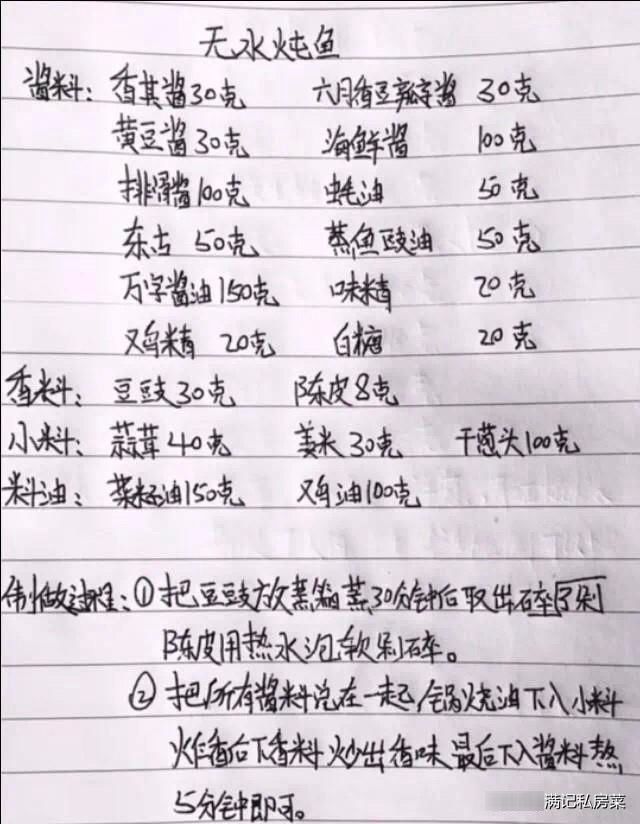 无水炖鱼
酱料：香其酱30克 六月香豆瓣酱 30克
黄豆酱30克 海鲜酱 100克
排骨酱100克 蚝油 50克
东古 50克 蒸鱼豉油 50克
万字酱油150克 味精 20克
鸡精 20克 白糖 20克
香料：豆豉30克 陈皮8克
小料：蒜茸40克 姜米30克 干葱头100克
料油：菜籽油150克 鸡油100克
制做过程：①把豆豉放蒸箱蒸30分钟后取出碎
陈皮用热水泡软剁碎。
②把所有酱料兑在一起，锅烧油下入小料
炸香后下香料炒出香味最后下入酱料熬
5分钟即可。
满记私房菜